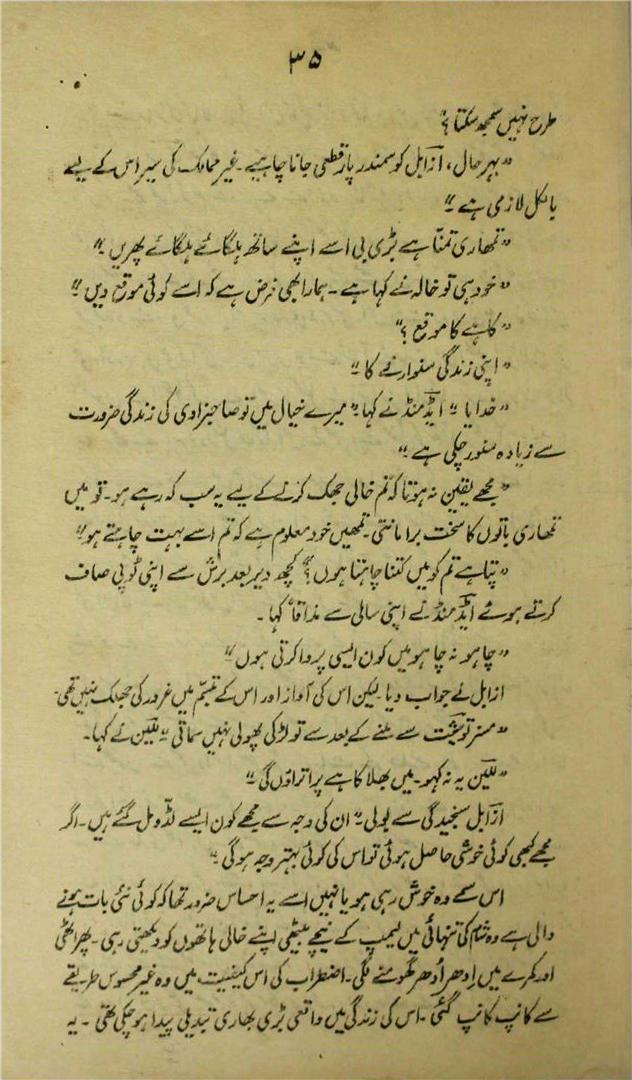 ۳۵
طرح نہیں سمجھ سکتا ؟"
"بہر حال، ازابل کو سمندر پار قطعی جانا چاہیے۔ غیر ممالک کی سیر اس کے لیے
بالکل لازمی ہے۔"
"تمھاری تمنا ہے بڑی بی اسے اپنے ساتھ ہلگائے ہلگائے پھریں۔"
"خود ہی تو خالہ نے کہا ہے۔ ہمارا بھی فرض ہے کہ اسے کوئی موقع دیں۔"
"کاہے کا موقع ؟"
"اپنی زندگی سنوارنے کا۔"
"خدایا۔" ایڈمنڈ نے کہا۔" میرے خیال میں تو صاحبزادی کی زندگی ضرورت
سے زیادہ سنور چکی ہے۔"
"مجھے یقین نہ ہوتا کہ تم خالی جھک کرنے کے لیے یہ سب کہہ رہے ہو۔ تو میں
تمھاری باتوں کا سخت برا مانتی۔ تمھیں خود معلوم ہے کہ تم اسے بہت چاہتے ہو۔"
"پتا ہے تم کو میں کتنا چاہتا ہوں؟" کچھ دیر بعد برش سے اپنی ٹوپی صاف
کرتے ہوئے ایڈمنڈ نے اپنی سالی سے مذاقاً کہا۔
"چاہو نہ چاہو میں کون ایسی پروا کرتی ہوں۔"
ازابل نے جواب دیا۔ لیکن اس کی آواز اور اس کے تبسّم میں غرور کی جھلک نہیں تھی۔
"مسز توشیٹ سے ملنے کے بعد سے تو لڑکی پھولی نہیں سماتی۔" للین نے کہا۔
"للین یہ نہ کہو۔ میں بھلا کاہے پر اتراؤں گی۔"
ازابل سنجیدگی سے بولی۔" ان کی وجہ سے مجھے کون ایسے لڈو مل گئے ہیں۔ اگر
مجھے کبھی کوئی خوشی حاصل ہوئی تو اس کی کوئی بہتر وجہ ہوگی۔"
اس سمے وہ خوش رہی ہو یا نہیں اسے یہ احساس ضرور تھا کہ کوئی نئی بات ہونے
والی ہے وہ شام کی تنہائی میں لیمپ کے نیچے بیٹھی اپنے خالی ہاتھوں کو دیکھتی رہی۔ پھر اٹھی
اور کمرے میں اِدھر اُدھر گھومنے لگی۔ اضطراب کی اس کیفیت میں وہ غیر محسوس طریقے
سے کانپ کانپ گئی۔ اس کی زندگی میں واقعی بڑی بھاری تبدیلی پیدا ہو چکی تھی۔ یہ